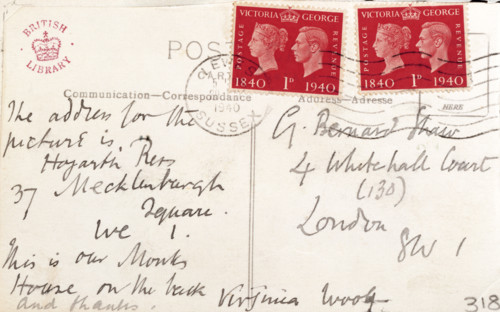 BRITISH
LIBRARY
POS
VICTORIA GEORGE
POSTAGE
REVENUE
1840 1D 1940
VICTORIA GEORGE
POSTAGE
REVENUE
1840 1D 1940
LEWES
1940
SUSSEX
HERE
Communication—Correspondance
Address—Adresse
The address for the
picture is,
Hogarth Press
37 Mecklenburgh
Square.
WC 1.
This is our Monks
House, on the back
and thanks.
Virginia Woolf
G. Bernard Shaw
4 Whitehall Court
(130)
London
SW 1
318